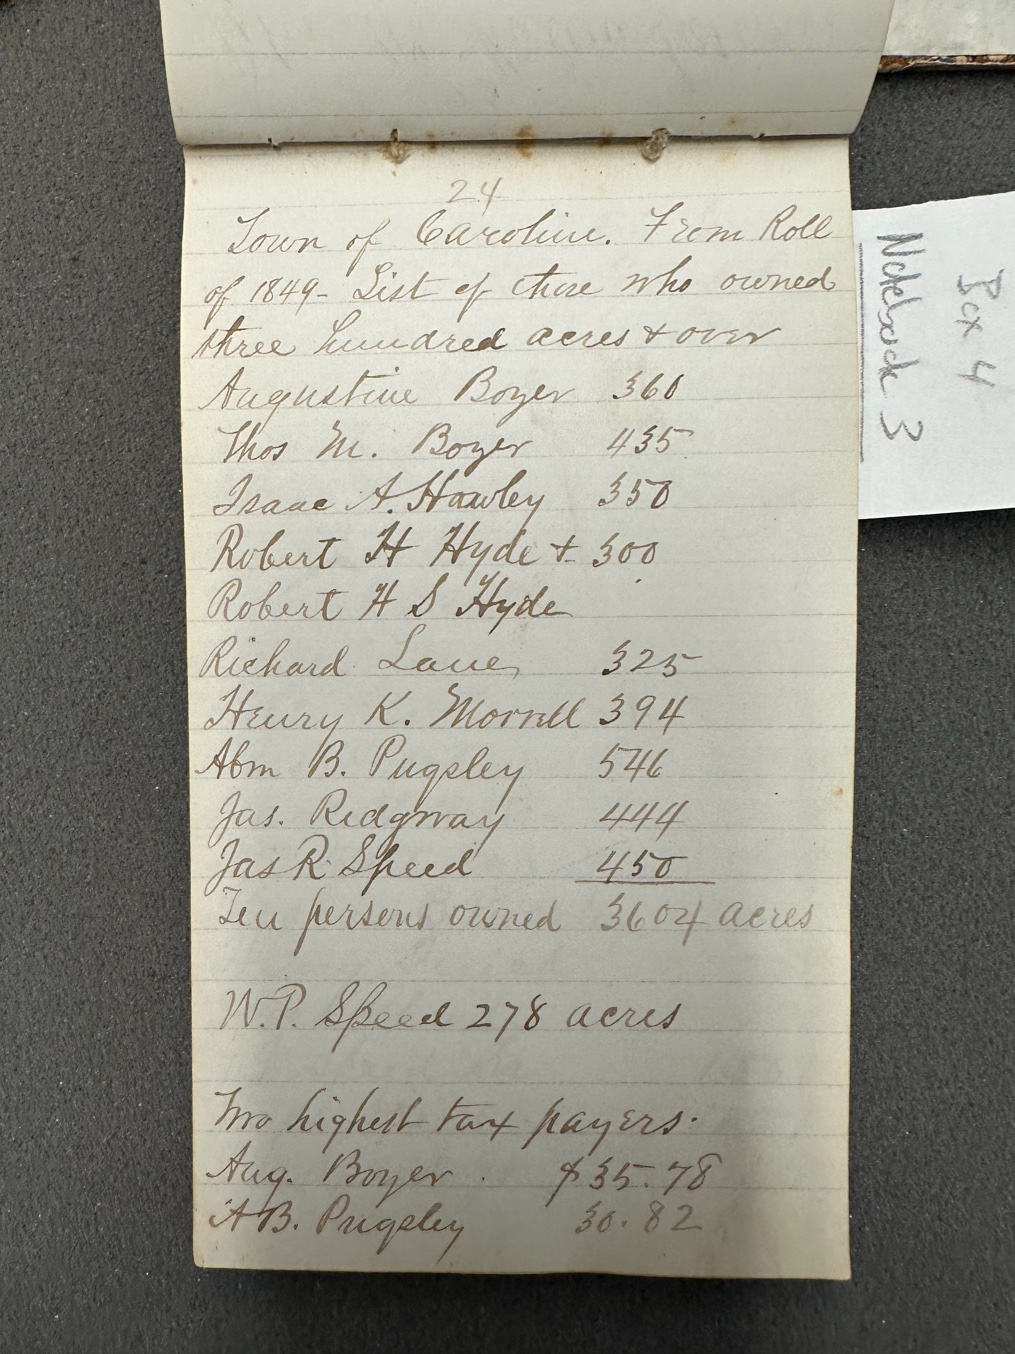 24
Town of Caroline. From Roll
of 1849- List of those who owned
three hundred acres & over
Augustine Boyer 360
Thos M. Boyer 435
Isaac A. Hawley 350
Robert H Hyde & 300
Robert H S Hyde
Richard Lane 325
Henry K. Morrell 394
Abm B. Pugsley 546
Jas. Ridgway 444
Jas R. Speed 450
Ten persons owned 3604 acres
W.P. Speed 278 acres
Two highest tax payers.
Aug. Boyer. $35.78
A B. Pugsley 30.82
Box 4
Notebook 3